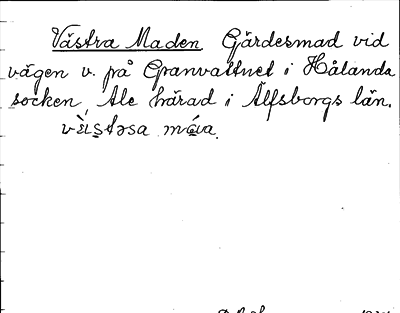 Västra Maden Gärdesmad vid
vägen v. på Granvattnet i Hålanda
socken, Ale härad i Älfsborgs län.